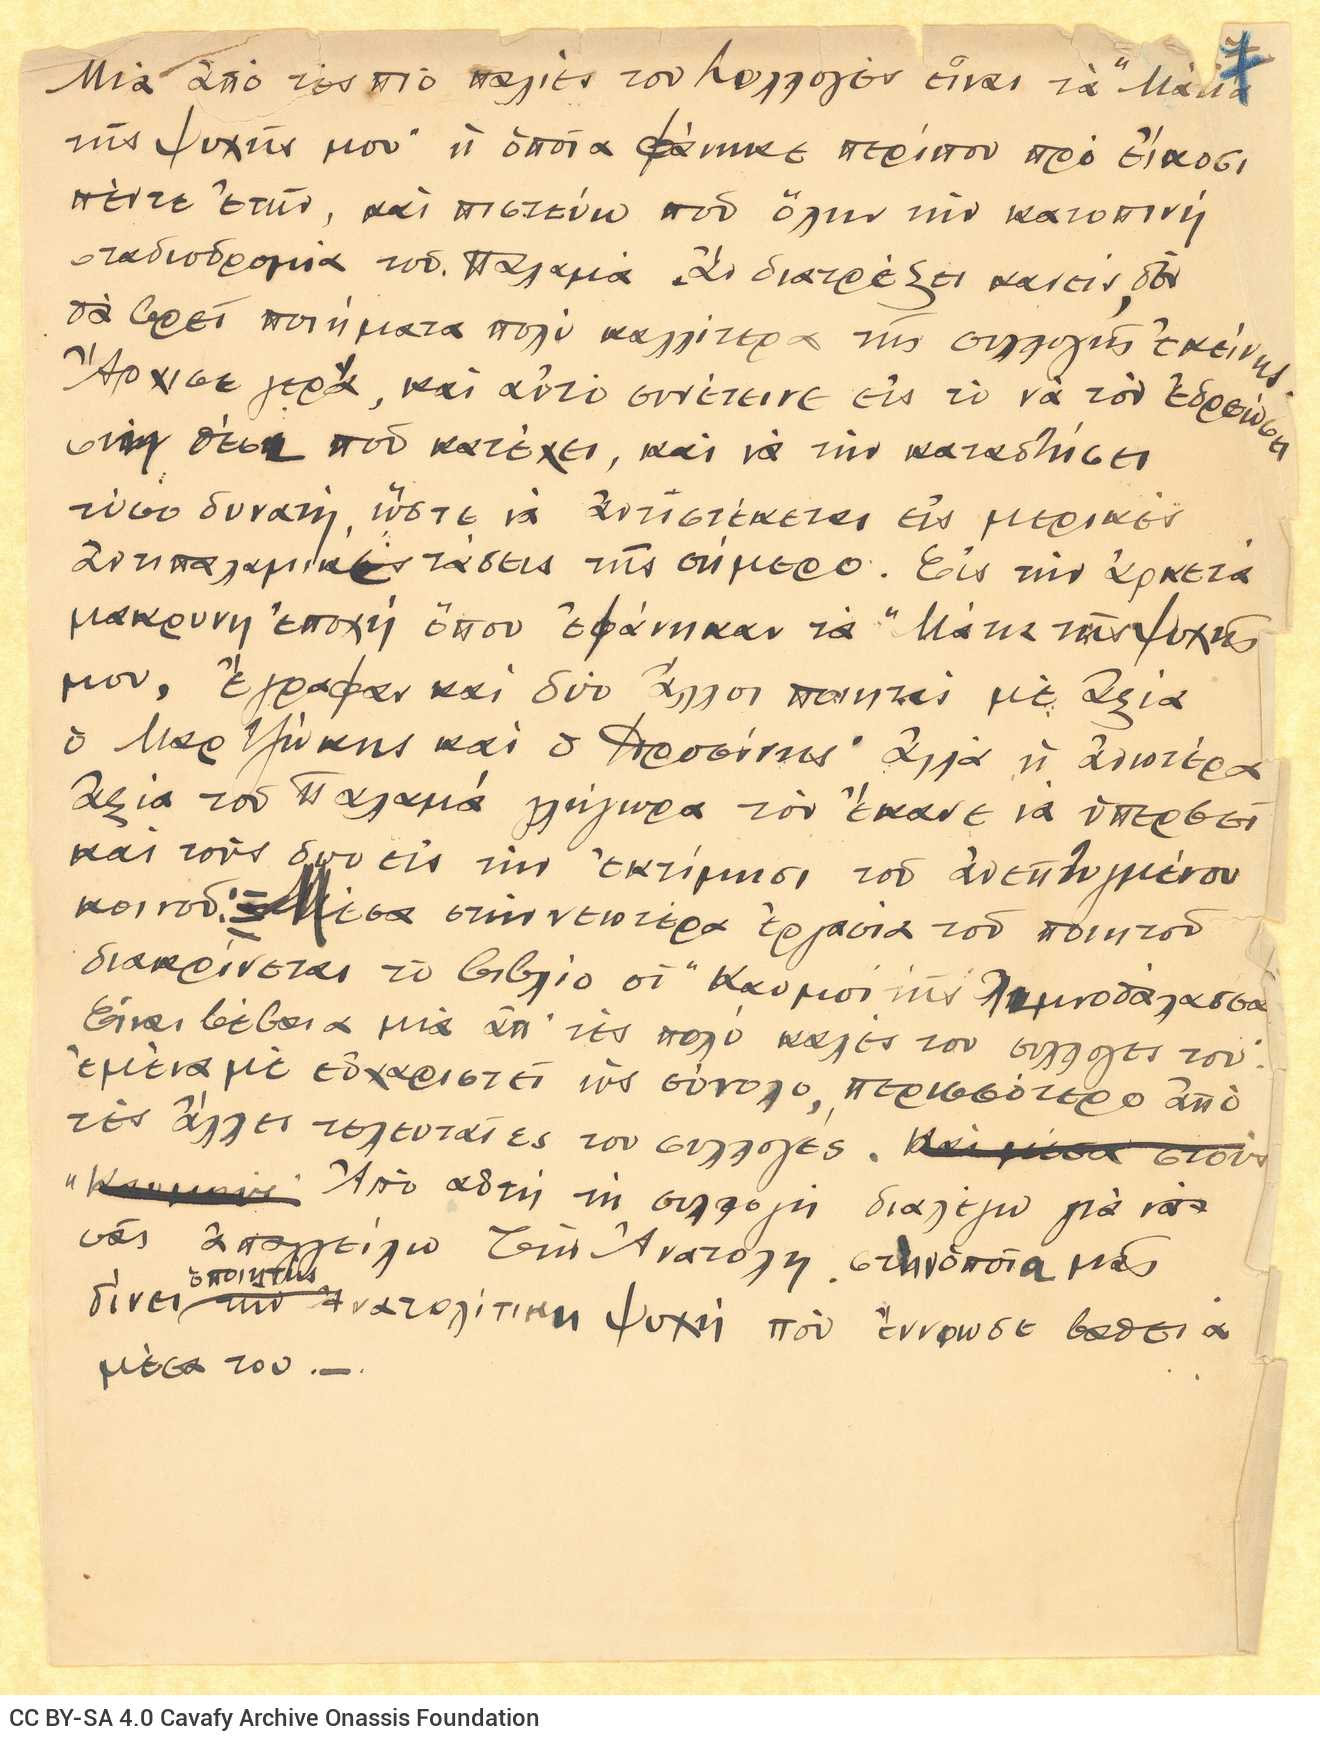 Μιὰ ἀπὸ τὲς πιὸ παλιὲς του συλλογὲς εἶναι τὰ "Μάτια
τῆς ψυχῆς μου" ἡ ὁποία φάνηκε περίπου πρὸ εἴκοσι
πέντε ἐτῶν, καὶ πιστεύω ποῦ ὅλην τὴν κατοπινὴ
σταδιοδρομία τοῦ Παλαμᾶ ἂν διατρέξει κανείς, δὲν
θὰ βρεῖ ποιήματα πολὺ καλλίτερα τῆς συλλογῆς ἐκείνης.
Ἄρχισε γερά, καὶ αὐτὸ συνέτεινε εἰς τὸ νὰ τὸν ἑδρεώσει
στὴν θέση ποῦ κατέχει, καὶ νὰ τὴν καταστήσει
τόσο δυνατή, ὥστε νὰ ἀντιστέκεται εἰς μερικὲς
ἀντιπαλαμικὲς τάσεις τῆς σήμερο. Εἰς τὴν ἀρκετὰ
μακρυνὴ ἐποχὴ ὅπου ἐφάνηκαν τὰ "Μάτια τῆς ψυχῆς
μου, ἔγραφαν καὶ δύο ἄλλοι ποιηταὶ μὲ ἀξία
ὁ Μαρτζώκης καὶ ὁ Δροσίνης· ἀλλὰ ἡ ἀνωτέρα
ἀξία τοῦ Παλαμᾶ γλήγωρα τὸν ἔκανε νὰ ὑπερβεῖ
καὶ τοὺς δυο εἰς τὴν ἐκτίμησι τοῦ ἀνεπτυγμένου
κοινοῦ. Μέσα στὴν νεωτέρα ἐργασία τοῦ ποιητοῦ
διακρίνεται τὸ βιβλίο οἱ "Καϋμοὶ τῆς Λιμνοθάλασσα
Εἶναι βέβαια μιὰ ἀπ' τὲς πολὺ καλὲς του συλλογες του·
ἐμένα μὲ εὐχαριστεῖ ὡς σύνολο, περισσότερο ἀπὸ
τὲς ἄλλες τελευταῖες του συλλογές. Καὶ μέσα στοὺς
"Καϋμοὺς" Ἀπὸ αὐτὴ τὴ συλλογὴ διαλέγω γιὰ νὰ
σᾶς ἀπαγγείλω τὴν Ἀνατολη στὴν ὁποία μᾶς
ὁ ποιητὴς
δίνει τὴν Ἀνατολίτικη ψυχή ποὺ ἔννοιωσε βαθειὰ
μέσα του.—.
CC BY-SA 4.0 Cavafy Archive Onassis Foundation